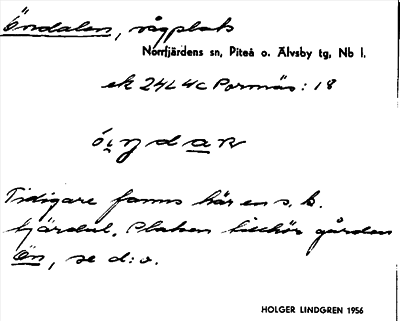 Öndalen, vägplats
Norrfjärdens sn, Piteå o. Älvsby tg, Nb l.
ek 24L4c Pormäs: 18
óindaɴ
Tidigare fanns här en s. k.
tjärdal. Platsen tillhör gården
Ön, se d:o.
HOLGER LINDGREN 1956